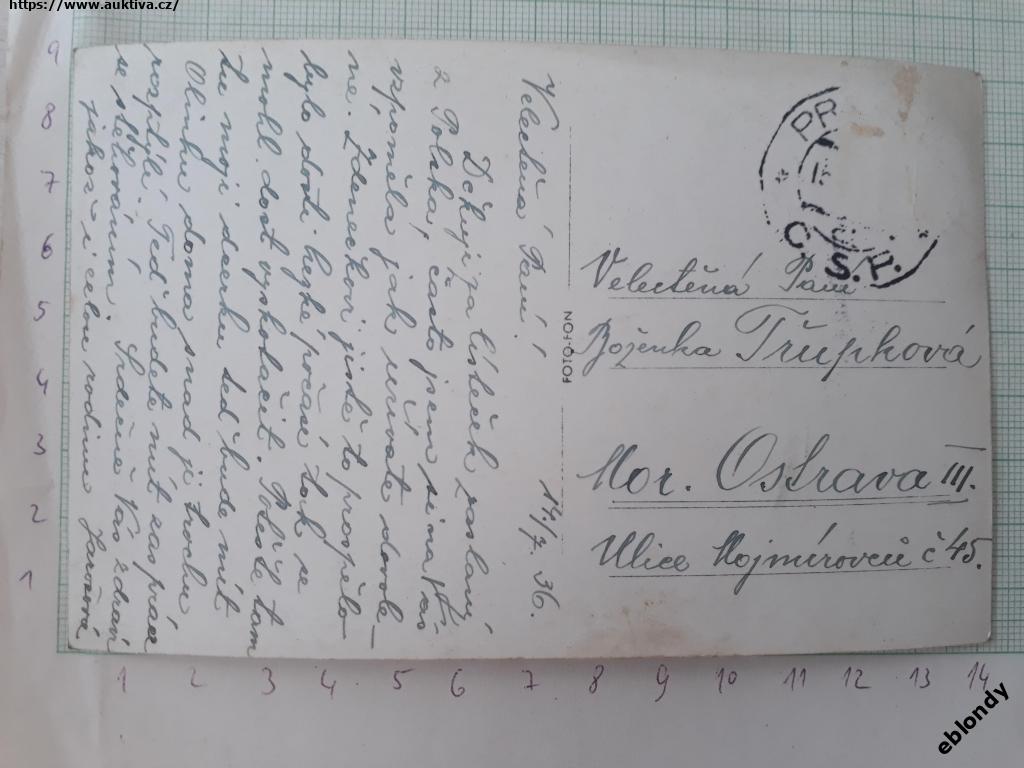 https://www.auktiva.cz/
Velectěná Paní!
14/7. 36.
Děkuji za lísteček zaslaný
z Polska, často jsem si na Vás
vzpoměla jak užíváte dovole-
né. Zdeneckovi jistě to prospělo
bylo dosti hezké počasí tak se
mohl dost vyskotačit. Píšete tam
že moji dcerku teď bude mít
Olinku doma snad ji trochu
rozptýlí. Teď budete mít zas práce
se stěhováním. Srdečně Vás zdraví
jakož i celou rodinu Jarošová
FOTO-FON
PR
Č.S.P.
Velectěná Paní
Boženka Třupková
Mor. Ostrava III.
Ulice Mojmírovců č 45.
9
8
7
6
5
4
3
2
1
1 2 3 4 5 6 7 8 9 10 11 12 13 14
eblondy